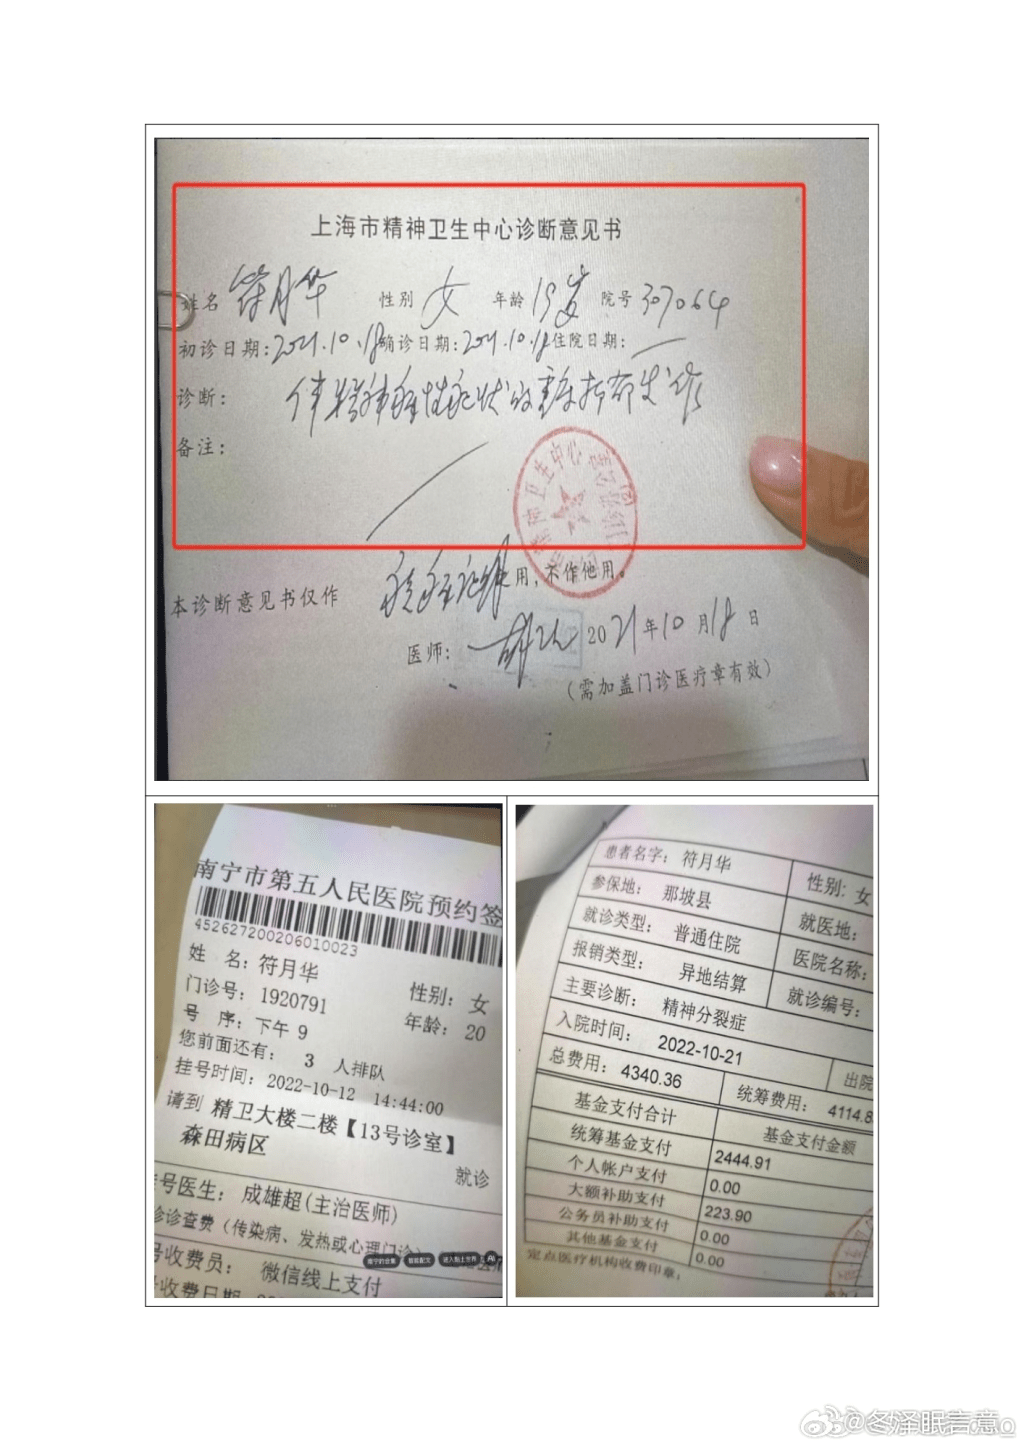 上海市精神卫生中心诊断意见书
姓名 符月华 性别 女 年龄 19岁 院号 307064
初诊日期:2021.10.18确诊日期:2021.10.18住院日期:
诊断: 伴精神病性症状的重度抑郁发作
备注:
本诊断意见书仅作 用,不作他用。
医师: 2021年10月18日
(需加盖门诊医疗章有效)
南宁市第五人民医院预约签
452627200206010023
姓 名: 符月华 性别: 女
门诊号: 1920791 年龄: 20
号 序: 下午 9
您前面还有: 3 人排队
挂号时间: 2022-10-12 14:44:00
请到 精卫大楼二楼【13号诊室】
森田病区
就诊
号医生: 成雄超(主治医师)
诊诊查费 (传染病、发热或心理门诊)
号收费员: 微信线上支付
收费日期
患者名字: 符月华 性别: 女
参保地: 那坡县 就医地:
就诊类型: 普通住院 医院名称:
报销类型: 异地结算 就诊编号:
主要诊断: 精神分裂症
入院时间: 2022-10-21 出院
总费用: 4340.36 统筹费用: 4114.8
基金支付合计 基金支付金额
统筹基金支付 2444.91
个人帐户支付 0.00
大额补助支付 223.90
公务员补助支付 0.00
其他基金支付 0.00
定点医疗机构收费印章:
@冬泽眠言意